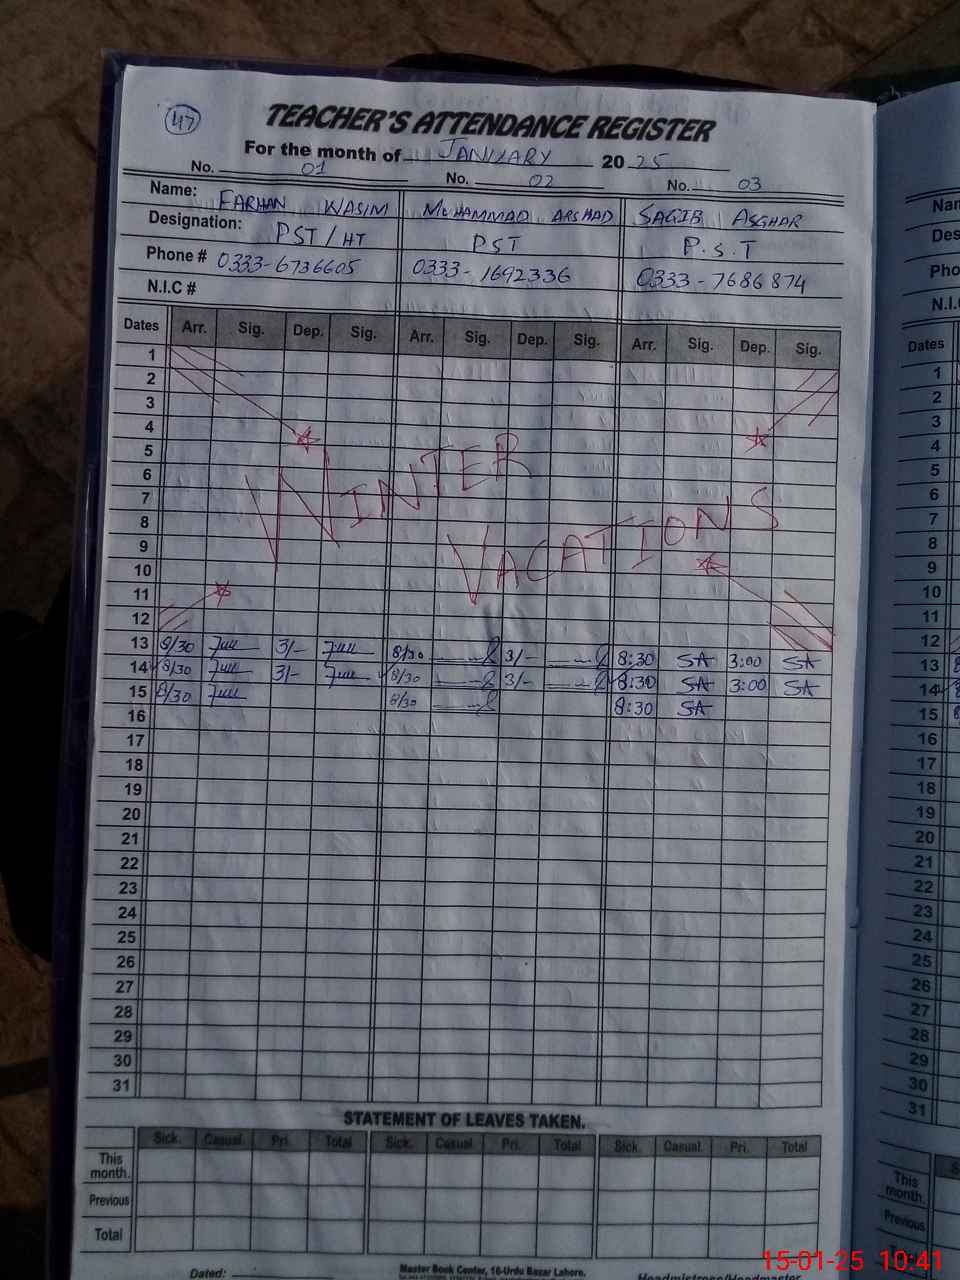 47
TEACHER'S ATTENDANCE REGISTER
For the month of JANUARY 2025
No. 01 No. 02 No. 03
Name: FARHAN WASIM MUHAMMAD ARSHAD SAQIB ASGHAR
Designation: PST/HT PST P.S.T
Phone # 0333-6736605 0333-1692336 0333-7686874
N.I.C #
Dates Arr. Sig. Dep. Sig. Arr. Sig. Dep. Sig. Arr. Sig. Dep. Sig.
1
2
3
4
5
6
7
8
9
10
11
12
WINTER
VACATIONS
13 8/30 3/- 8/30 3/- 8:30 SA 3:00 SA
14 8/30 3/- 8/30 3/- 8:30 SA 3:00 SA
15 8/30 8/30 8:30 SA
16
17
18
19
20
21
22
23
24
25
26
27
28
29
30
31
STATEMENT OF LEAVES TAKEN.
Sick. Casual. Pri. Total Sick. Casual Pri. Total Sick. Casual. Pri. Total
This month.
Previous
Total
Dated:
Master Book Center, 16-Urdu Bazar Lahore.
Headmistress/Headmaster
Nam
Des
Pho
N.I.C
Dates
1
2
3
4
5
6
7
8
9
10
11
12
13
14
15
16
17
18
19
20
21
22
23
24
25
26
27
28
29
30
31
This
month.
Previous
15-01-25 10:41